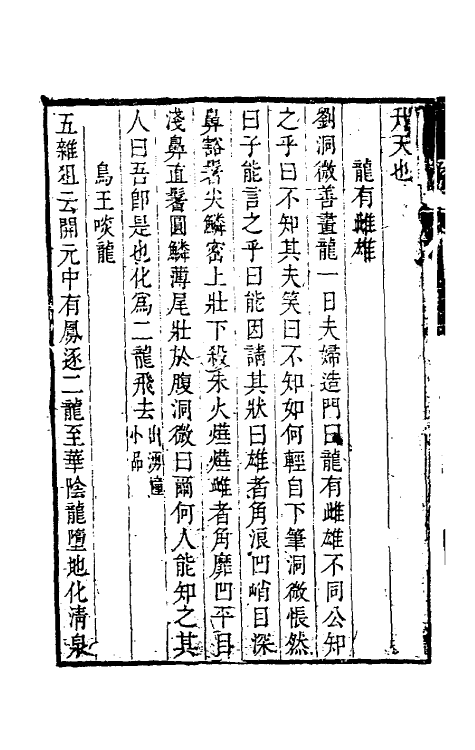 升天也
龍有雌雄
劉洞微善畫龍一日夫婦造門曰龍有雌雄不同公知
之乎曰不知其夫笑曰不知如何輕自下筆洞微悵然
曰子能言之乎曰能因請其狀曰雄者角浪凹峭目深
鼻豁鬐尖鱗密上壯下殺朱火燁燁雌者角靡凹平目
淺鼻直鬐圓鱗薄尾壯於腹洞微曰爾何人能知之其
人曰吾卽是也化爲二龍飛去出湧幢小品
鳥王啖龍
五雜狙云開元中有鳳逐二龍至華陰龍墮地化清泉